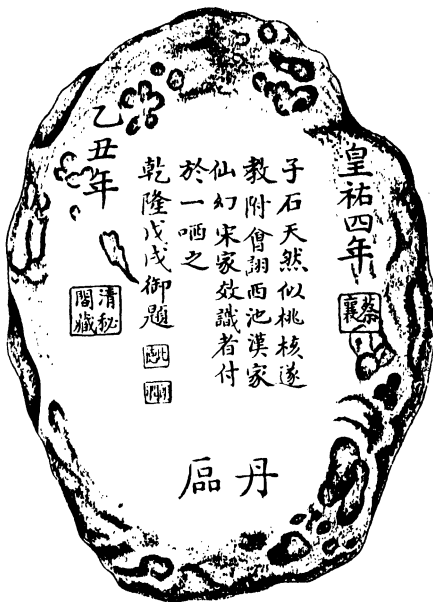 皇祐四年
蔡襄
子石天然似桃核遂
教附會詡西池漢家
仙幻宋家效識者付
於一哂之
乾隆戊戌御題
乙丑年
清秘
閣藏
丹區